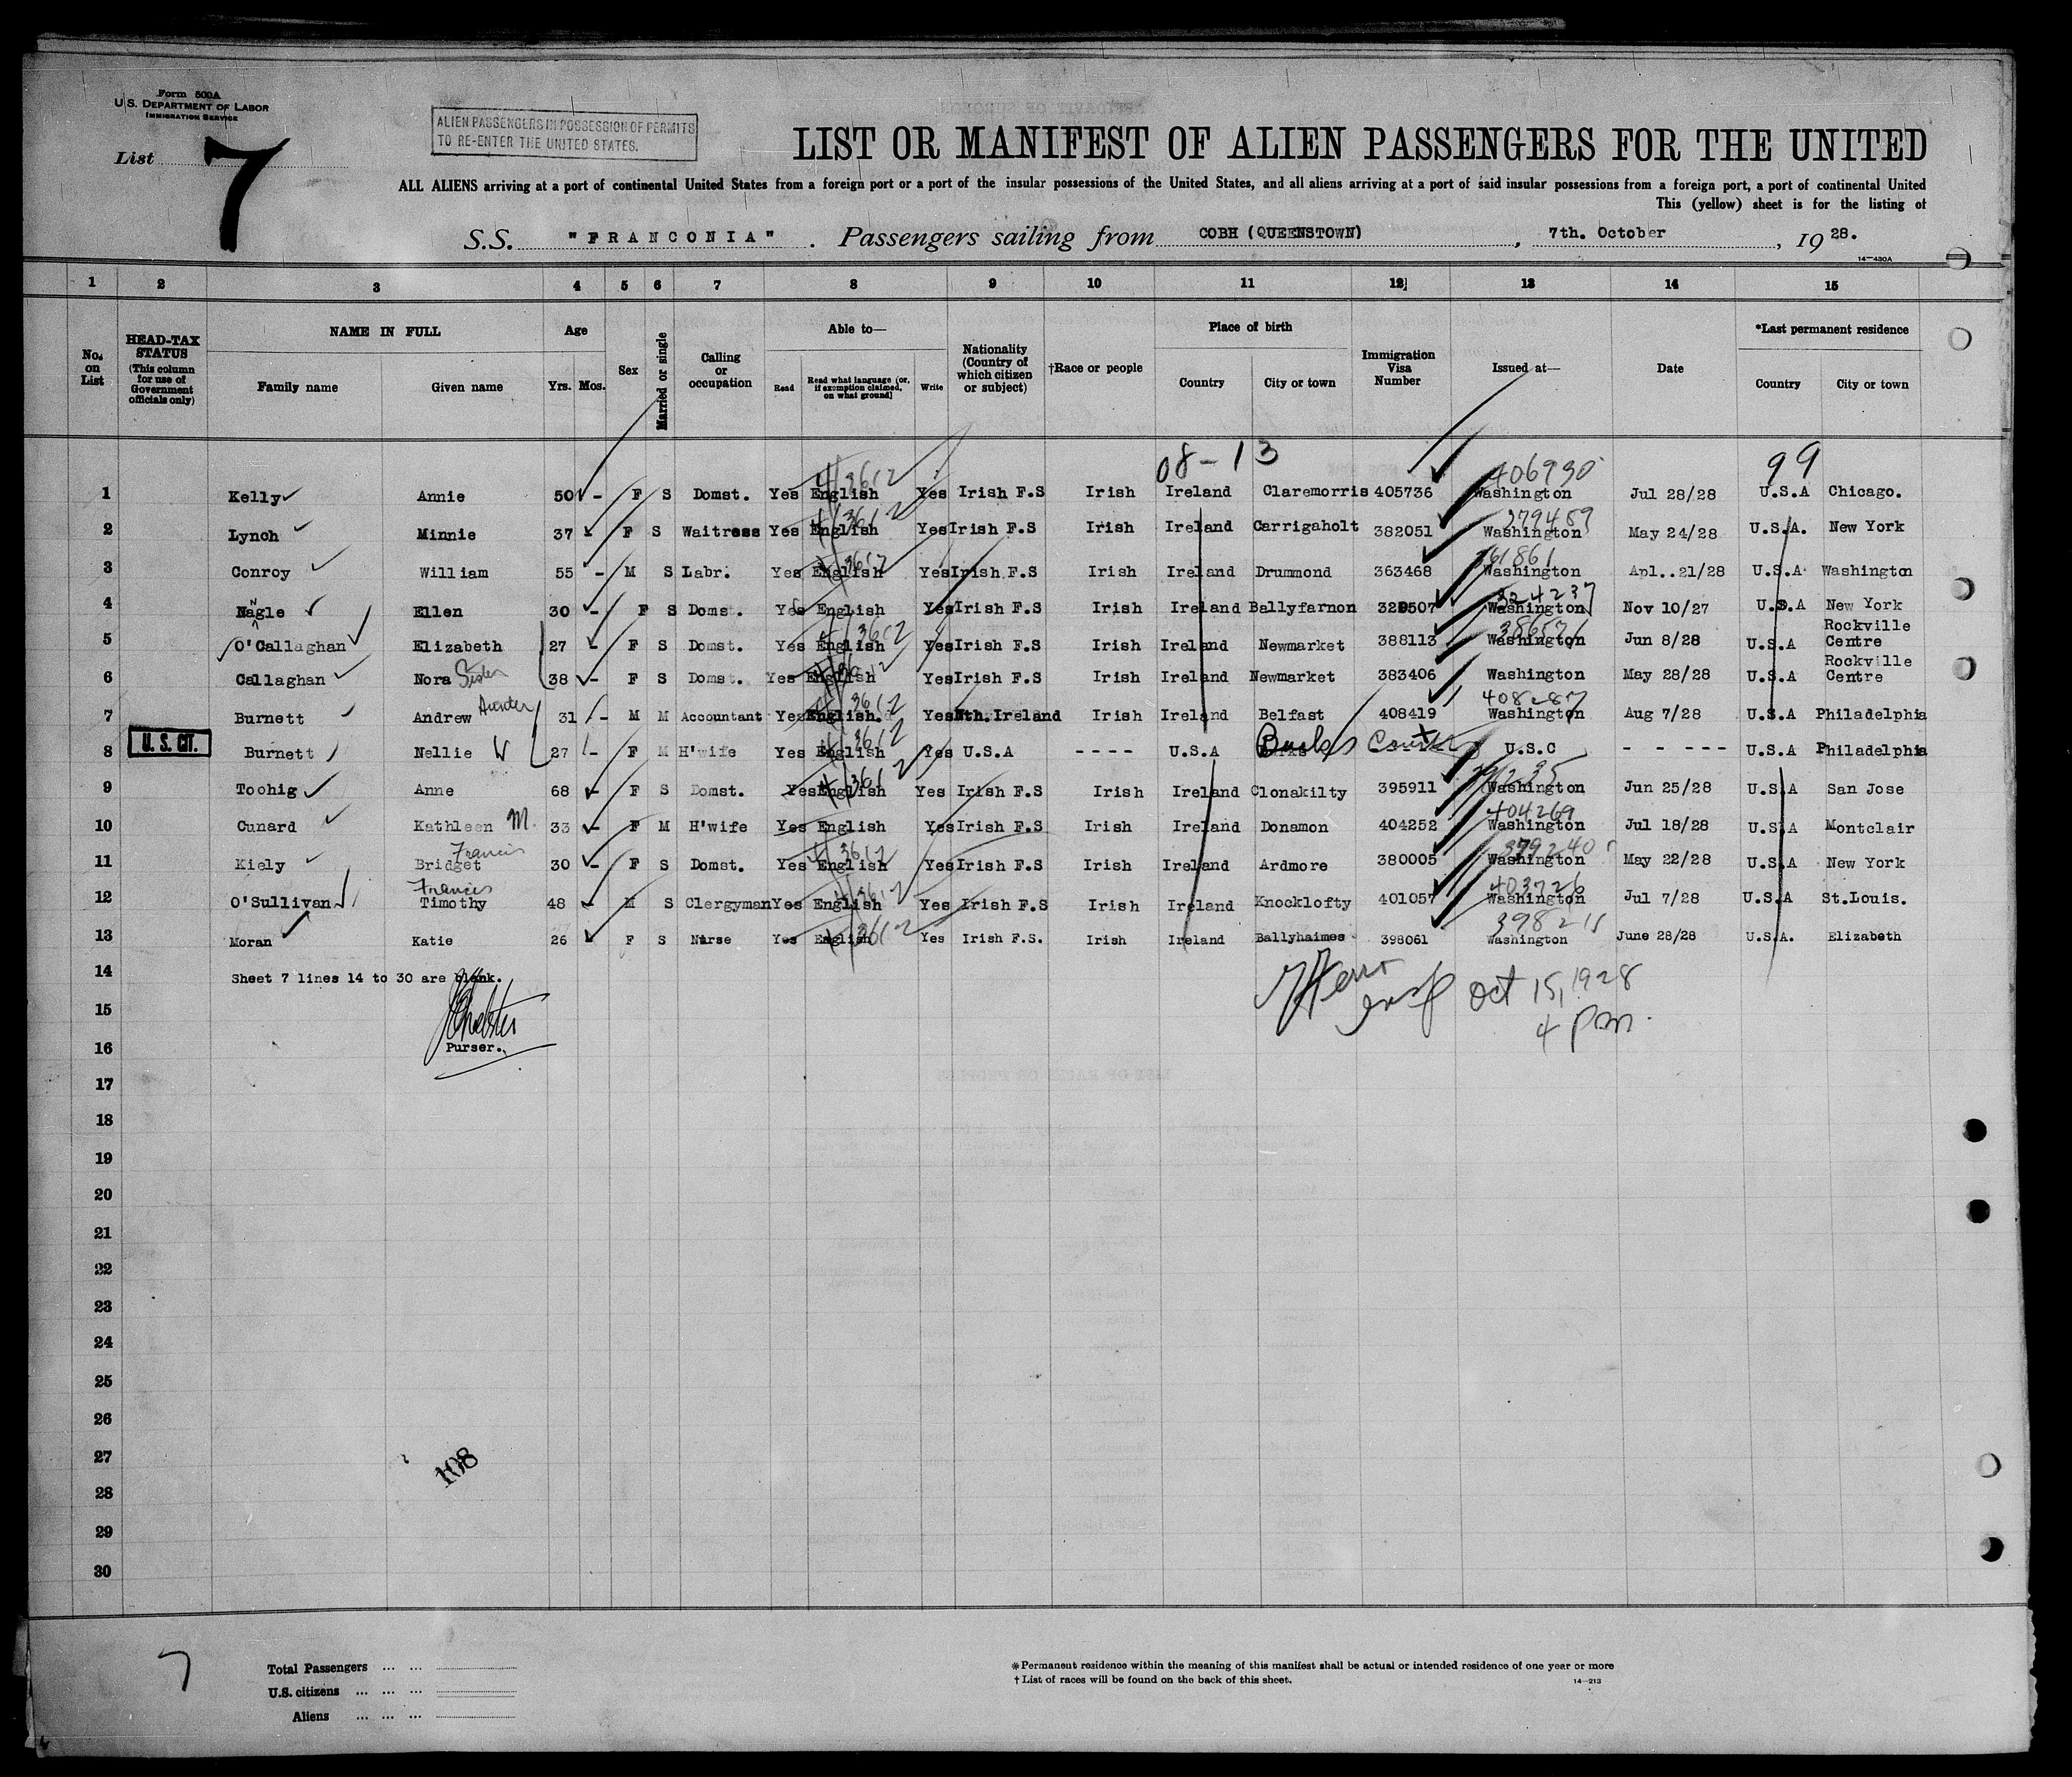 Form 500A
U.S. DEPARTMENT OF LABOR
IMMIGRATION SERVICE
List 7
ALIEN PASSENGERS IN POSSESSION OF PERMITS
TO RE-ENTER THE UNITED STATES.
LIST OR MANIFEST OF ALIEN PASSENGERS FOR THE UNITED
ALL ALIENS arriving at a port of continental United States from a foreign port or a port of the insular possessions of the United States, and all aliens arriving at a port of said insular possessions from a foreign port, a port of continental United
This (yellow) sheet is for the listing of
S.S. "FRANCONIA" . Passengers sailing from COBH (QUEENSTOWN) , 7th. October , 19 28.
14-430A
1 2 3 4 5 6 7 8 9 10 11 12 13 14 15
No. on List
HEAD-TAX STATUS (This column for use of Government officials only)
NAME IN FULL
Family name Given name
Age
Yrs. Mos.
Sex
Married or single
Calling or occupation
Able to—
Read Read what language (or, if exemption claimed, on what ground) Write
Nationality (Country of which citizen or subject)
†Race or people
Place of birth
Country City or town
Immigration Visa Number
Issued at—
Date
*Last permanent residence
Country City or town
08-13 99
406930
1 Kelly Annie 50 - F S Domst. Yes English Yes Irish F.S Irish Ireland Claremorris 405736 Washington Jul 28/28 U.S.A Chicago.
379489
2 Lynch Minnie 37 - F S Waitress Yes English Yes Irish F.S Irish Ireland Carrigaholt 382051 Washington May 24/28 U.S.A. New York
3 Conroy William 55 - M S Labr. Yes English Yes Irish F.S Irish Ireland Drummond 363468 Washington Apl..21/28 U.S.A Washington
324237
4 Nagle Ellen 30 - F S Domst. Yes English Yes Irish F.S Irish Ireland Ballyfarnon Washington Nov 10/27 U.S.A New York
5 O'Callaghan Elizabeth 27 - F S Domst. Yes English Yes Irish F.S Irish Ireland Newmarket 388113 Washington Jun 8/28 U.S.A Rockville Centre
6 Callaghan Nora Sister 38 - F S Domst. Yes English Yes Irish F.S Irish Ireland Newmarket 383406 Washington May 28/28 U.S.A Rockville Centre
408287
7 Burnett Andrew Hunter 31 - M M Accountant Yes English. Yes Nth.Ireland Irish Ireland Belfast 408419 Washington Aug 7/28 U.S.A Philadelphia
8 U.S. CIT. Burnett Nellie W 27 - F M H'wife Yes English Yes U.S.A - - - - U.S.A Bucks U.S.C - - --- U.S.A Philadelphia
9 Toohig Anne 68 - F S Domst. Yes English Yes Irish F.S Irish Ireland Clonakilty 395911 Washington Jun 25/28 U.S.A San Jose
404269
10 Cunard Kathleen M. 33 - F M H'wife Yes English Yes Irish F.S Irish Ireland Donamon 404252 Washington Jul 18/28 U.S.A Montclair
Francis 379240
11 Kiely Bridget 30 - F S Domst. Yes English Yes Irish F.S Irish Ireland Ardmore 380005 Washington May 22/28 U.S.A New York
Francis 403726
12 O'Sullivan Timothy 48 - M S Clergyman Yes English Yes Irish F.S Irish Ireland Knocklofty 401057 Washington Jul 7/28 U.S.A St.Louis.
13 Moran Katie 26 F S Nurse Yes English Yes Irish F.S. Irish Ireland Ballyhaimes 398061 Washington June 28/28 U.S.A. Elizabeth
14 Sheet 7 lines 14 to 30 are blank.
15 Oct 15, 1928
4 pm.
16 Purser.
17
18
19
20
21
22
23
24
25
26
27 108
28
29
30
7
Total Passengers ... ...
U.S. citizens ... ... ...
Aliens ... ... ...
*Permanent residence within the meaning of this manifest shall be actual or intended residence of one year or more
†List of races will be found on the back of this sheet. 14-213